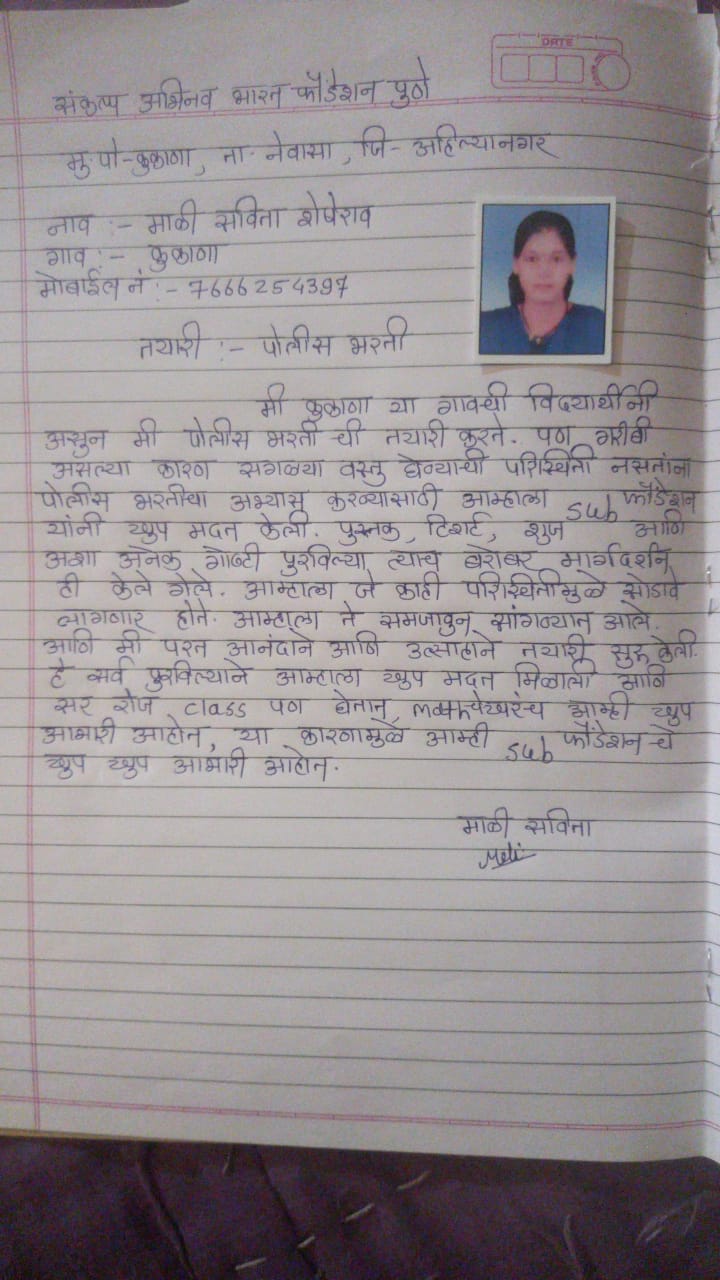 DATE
संकल्प अभिनव भारत फौंडेशन पुणे
मु.पो-कुकाणा, ता. नेवासा, जि- अहिल्यानगर
नाव :- माळी सविता शेषेराव
गाव :- कुकाणा
मोबाईल नं :- 7666254397
तयारी :- पोलीस भरती
मी कुकाणा या गावची विद्यार्थीनी
असुन मी पोलीस भरती ची तयारी करते. पण गरीबी
असल्या कारण सगळ्या वस्तु घेण्याची परिस्थिती नसतांना
पोलीस भरतीचा अभ्यास करण्यासाठी आम्हाला sab फौंडेशन
यांनी खुप मदत केली. पुस्तक, टिशर्ट, शुज आणि
अशा अनेक गोष्टी पुरविल्या त्याच बरोबर मार्गदर्शन
ही केले गेले. आम्हाला जे काही परिस्थितीमुळे सोडावे
लागणार होते. आम्हाला ते समजावुन सांगण्यात आले.
आणि मी परत आनंदाने आणि उत्साहाने तयारी सुरू केली.
हे सर्व पुरविल्याने आम्हाला खुप मदत मिळाली आणि
सर रोज class पण घेतात, आम्ही खुप
आभारी आहोत, या कारणामुळे आम्ही sab फौंडेशन चे
खुप खुप आभारी आहोत.
माळी सविता
Mali